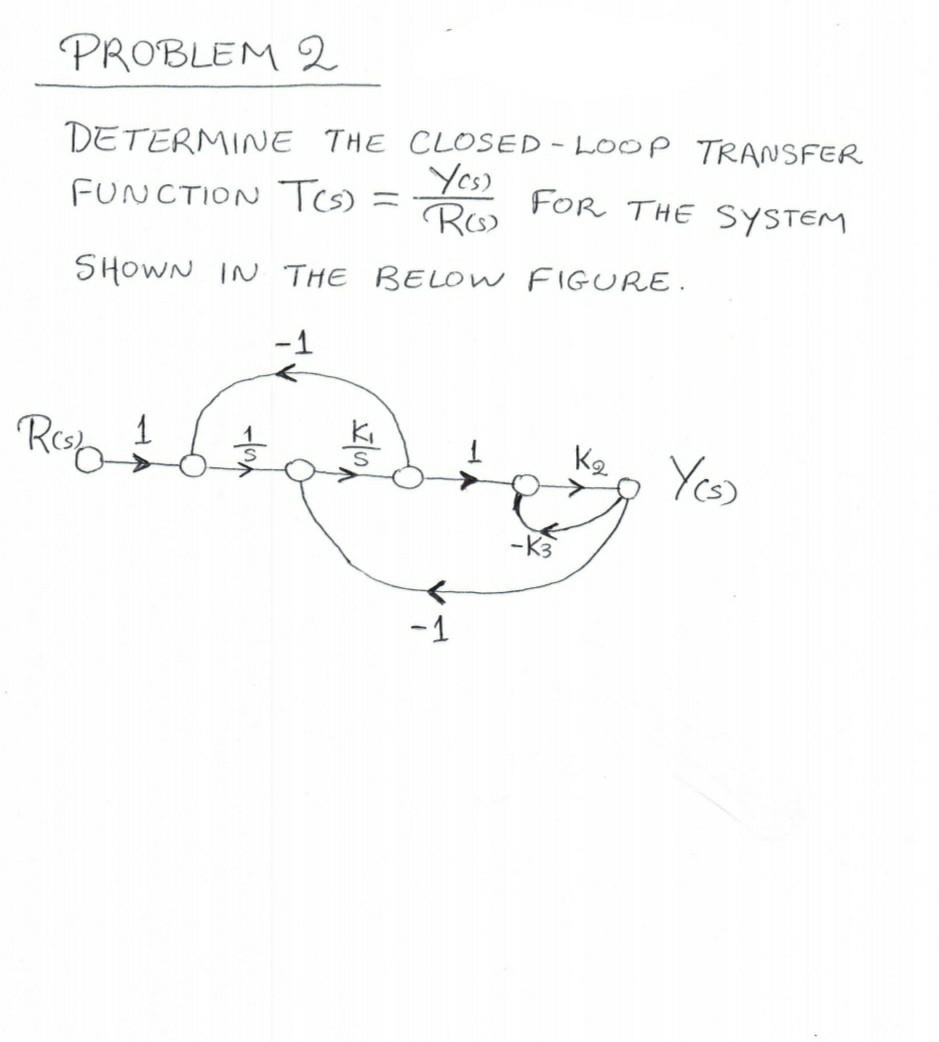 PROBLEM 2
DETERMINE THE CLOSED-LOOP TRANSFER
FUNCTION T(s) = Y(s)/R(s) FOR THE SYSTEM
SHOWN IN THE BELOW FIGURE.
-1
R(s) 1 1/s K1/s 1 K2 Y(s)
-K3
-1